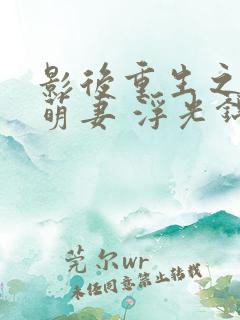 影後重生之
萌妻 浮光
莞尔wr
未经同意禁止转载